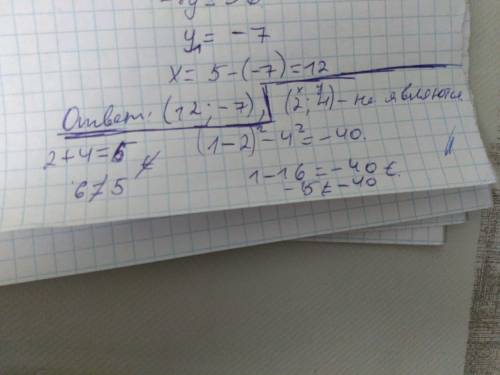 y₁ = -7
x = 5-(-7)=12
Ответ: (12; -7), (2; 4) - не являются
x y
2+4=5 (1-2)²-4²=-40.
6≠5 1-16=-40
-15≠-40